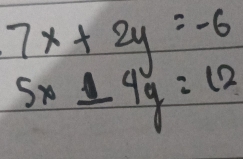 7x + 2y = -6
5x - 4y = 12